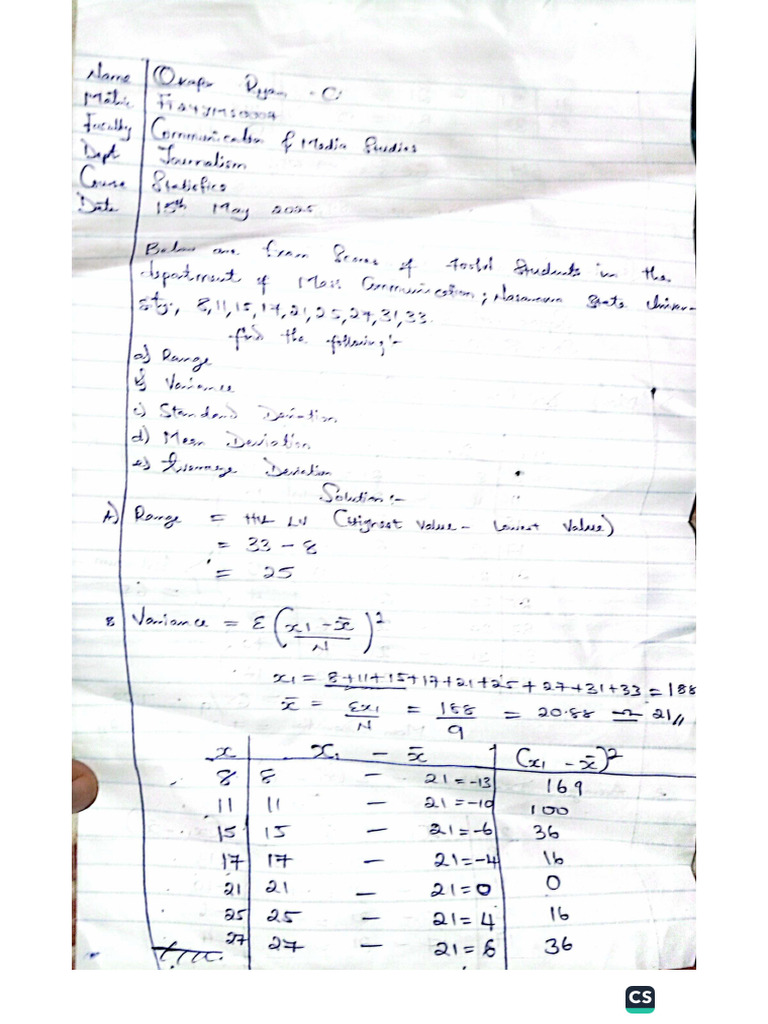 Name Okafor Ryan .C
Matric
Faculty Communication & Media Studies
Dept Journalism
Course Statistics
Date 15th May 2025
Below are from Scores of Students in the
department of Mass Communication, Nasarawa State Univer-
sity, 8, 11, 15, 17, 21, 25, 27, 31, 33.
find the following:-
a) Range
b) Variance
c) Standard Deviation
d) Mean Deviation
e) Average Deviation
Solution:-
A) Range = HV- LV (Highest value - Lowest Value)
= 33 - 8
= 25
B Variance = Ɛ (x1 - x̄ / N)²
x1 = 8+11+15+17+21+25+27+31+33 = 188
x̄ = Ɛx1 / N = 188 / 9 = 20.88 ≃ 21//
x x1 - x̄ (x1 - x̄)²
8 8 - 21 = -13 169
11 11 - 21 = -10 100
15 15 - 21 = -6 36
17 17 - 21 = -4 16
21 21 - 21 = 0 0
25 25 - 21 = 4 16
27 27 - 21 = 6 36
CS